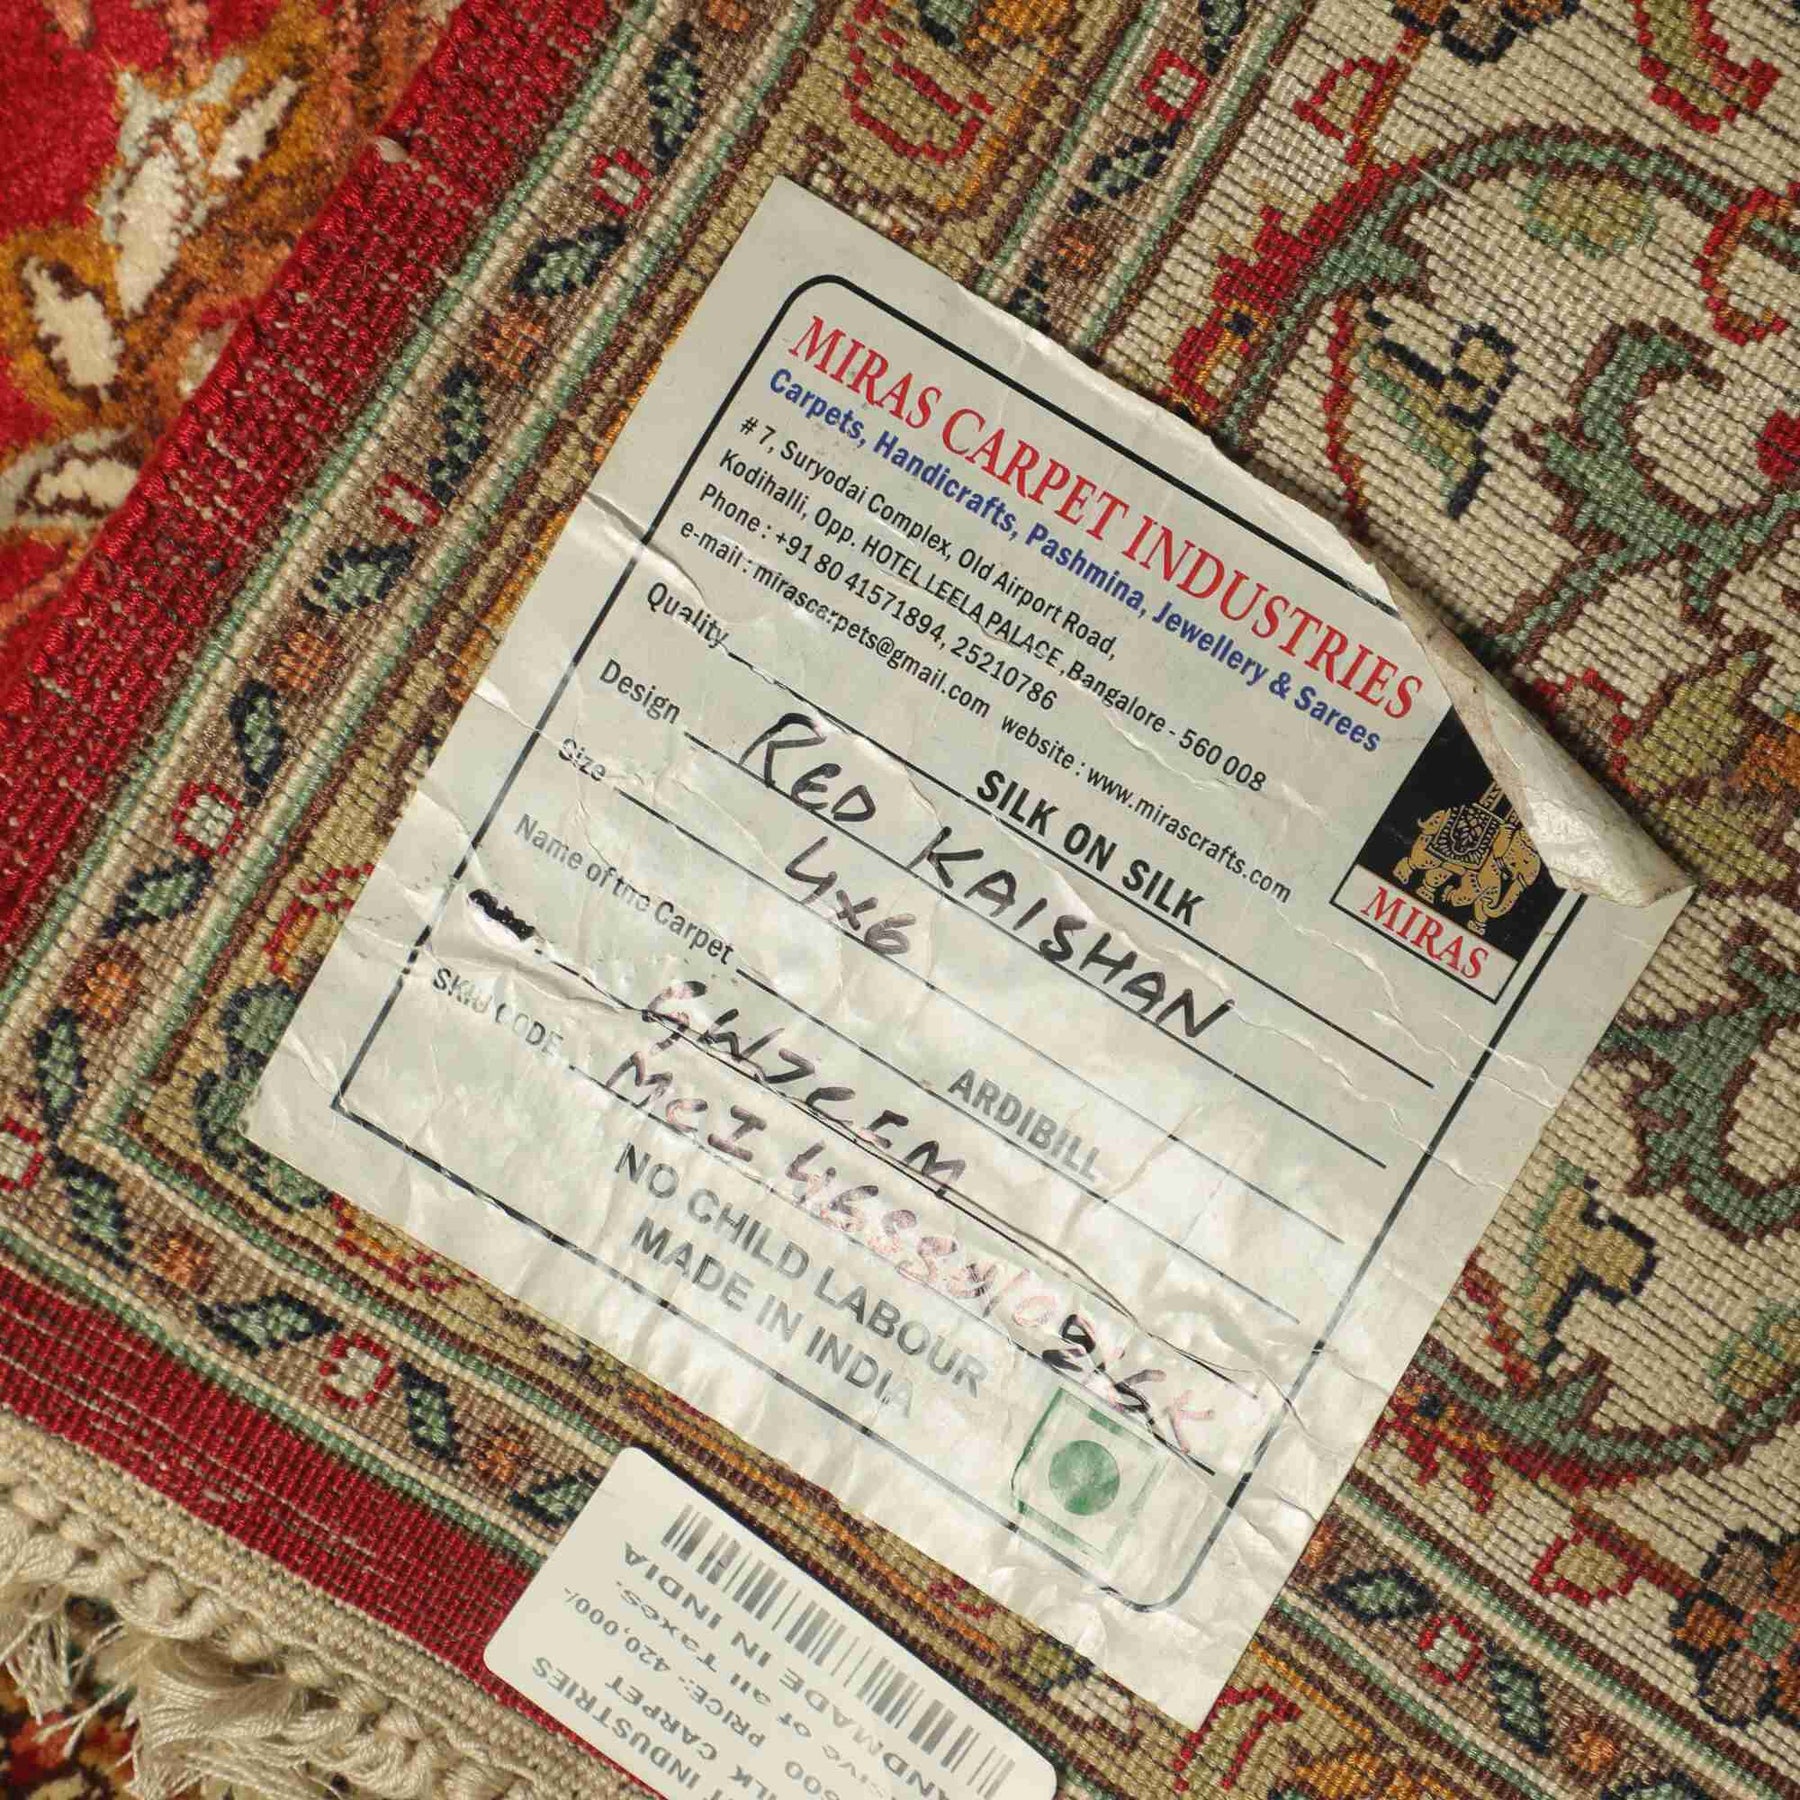 MIRAS CARPET INDUSTRIES
Carpets, Handicrafts, Pashmina, Jewellery & Sarees
# 7, Suryodai Complex, Old Airport Road,
Kodihalli, Opp. HOTEL LEELA PALACE, Bangalore - 560 008
Phone : +91 80 41571894, 25210786
e-mail : mirascarpets@gmail.com website : www.mirascrafts.com
MIRAS
Quality SILK ON SILK
Design RED KAISHAN
Size 4x6
Name of the Carpet ARDIBILL
SKU CODE
NO CHILD LABOUR
MADE IN INDIA
INDUSTRIES
CARPET
PRICE:- 420,000/-
of all Taxes.
MADE IN INDIA